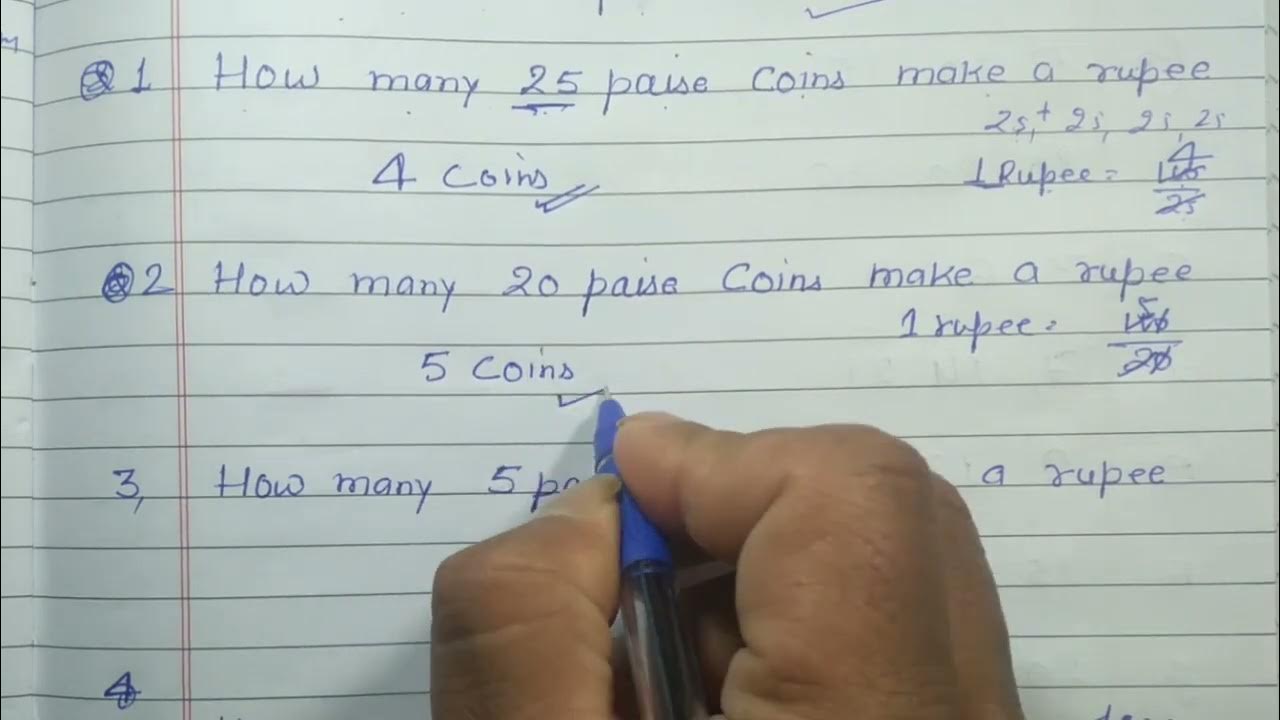 1 How many 25 paise Coins make a rupee
25,+ 25, 25, 25
4 Coins
1 Rupee = 4
100
25
2 How many 20 paise Coins make a rupee
1 rupee = 5
100
20
5 Coins
3, How many 5 a rupee
4